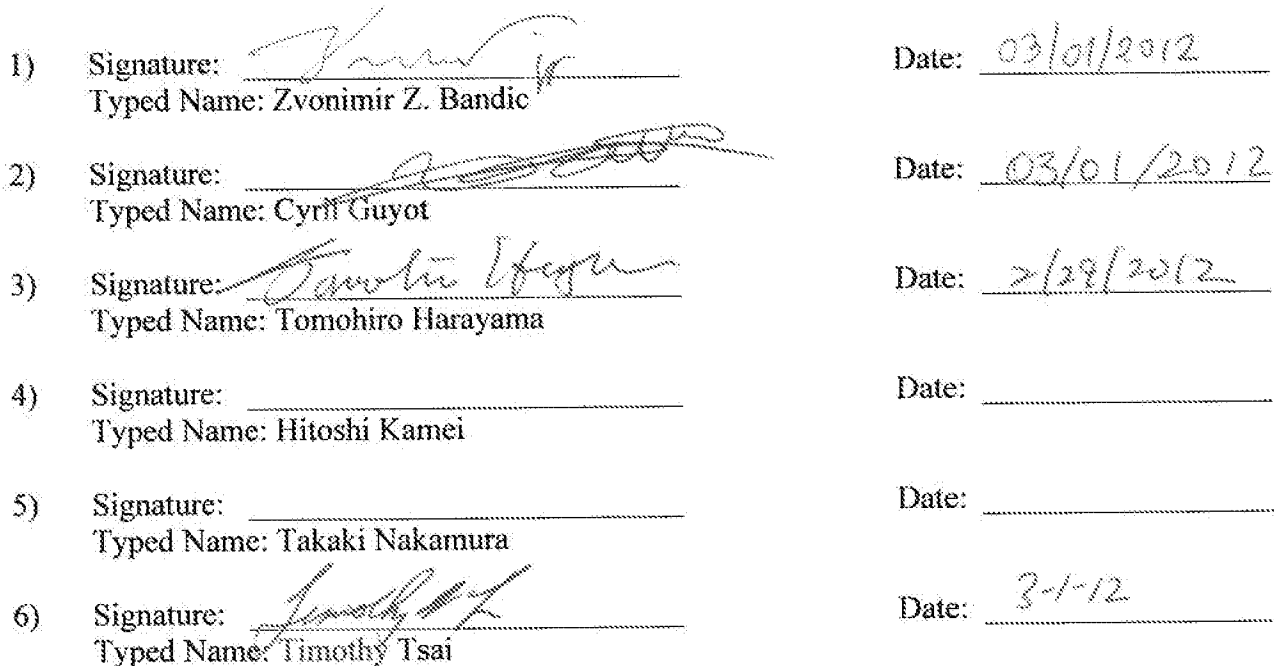 1) Signature: Date: 03/01/2012
Typed Name: Zvonimir Z. Bandic
2) Signature: Date: 03/01/2012
Typed Name: Cyril Guyot
3) Signature: Date: 2/29/2012
Typed Name: Tomohiro Harayama
4) Signature: Date:
Typed Name: Hitoshi Kamei
5) Signature: Date:
Typed Name: Takaki Nakamura
6) Signature: Date: 3-1-12
Typed Name: Timothy Tsai